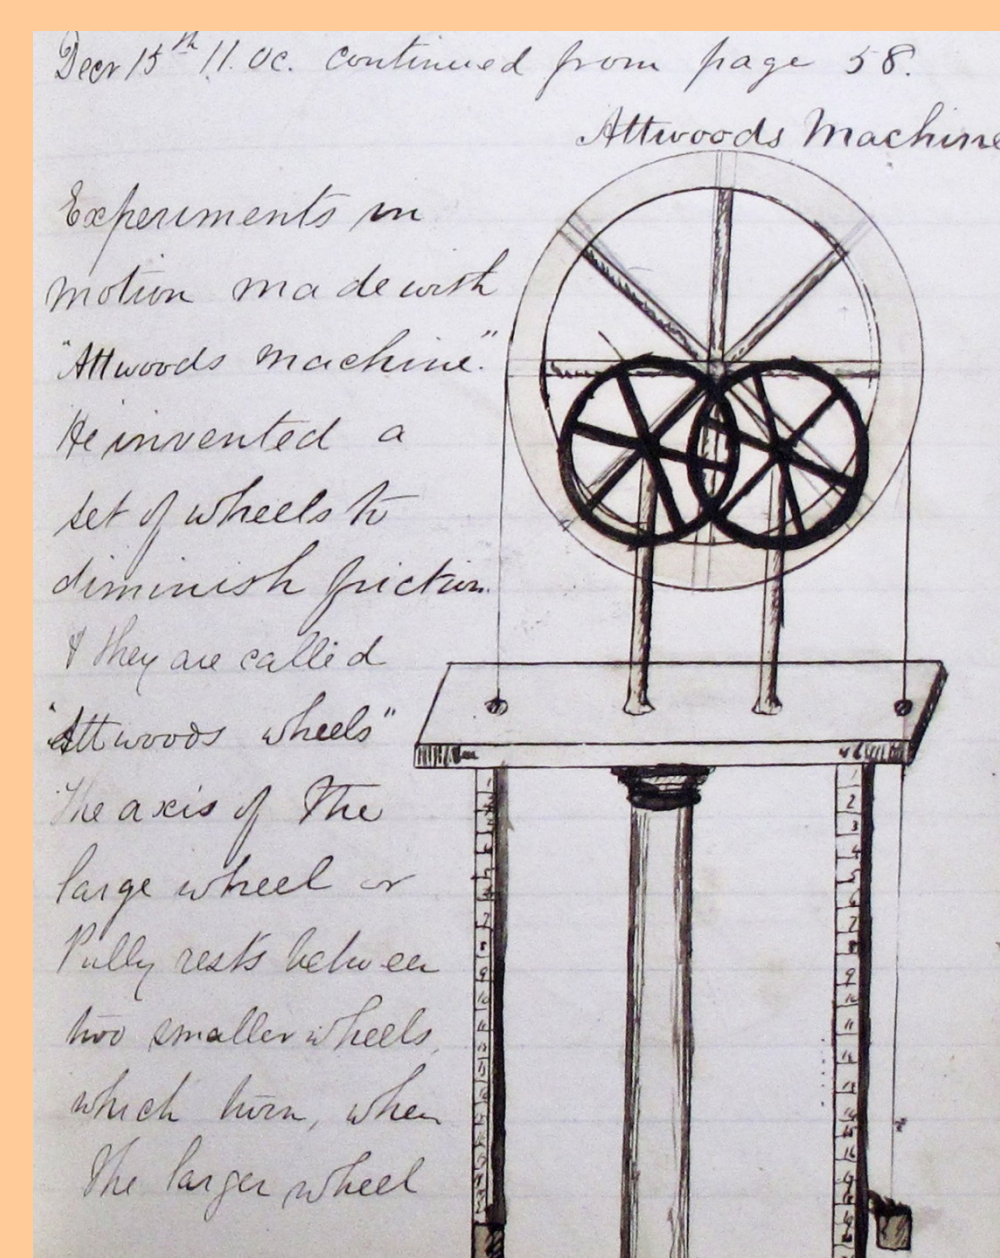 Decr 15th 11. Oc. continued from page 58.
Attwoods Machine
Experiments in
motion made with
"Attwoods Machine."
He invented a
set of wheels to
diminish friction
& they are called
"Attwoods wheels"
The axis of the
large wheel or
Pully rests between
two smaller wheels,
which turn, when
the larger wheel